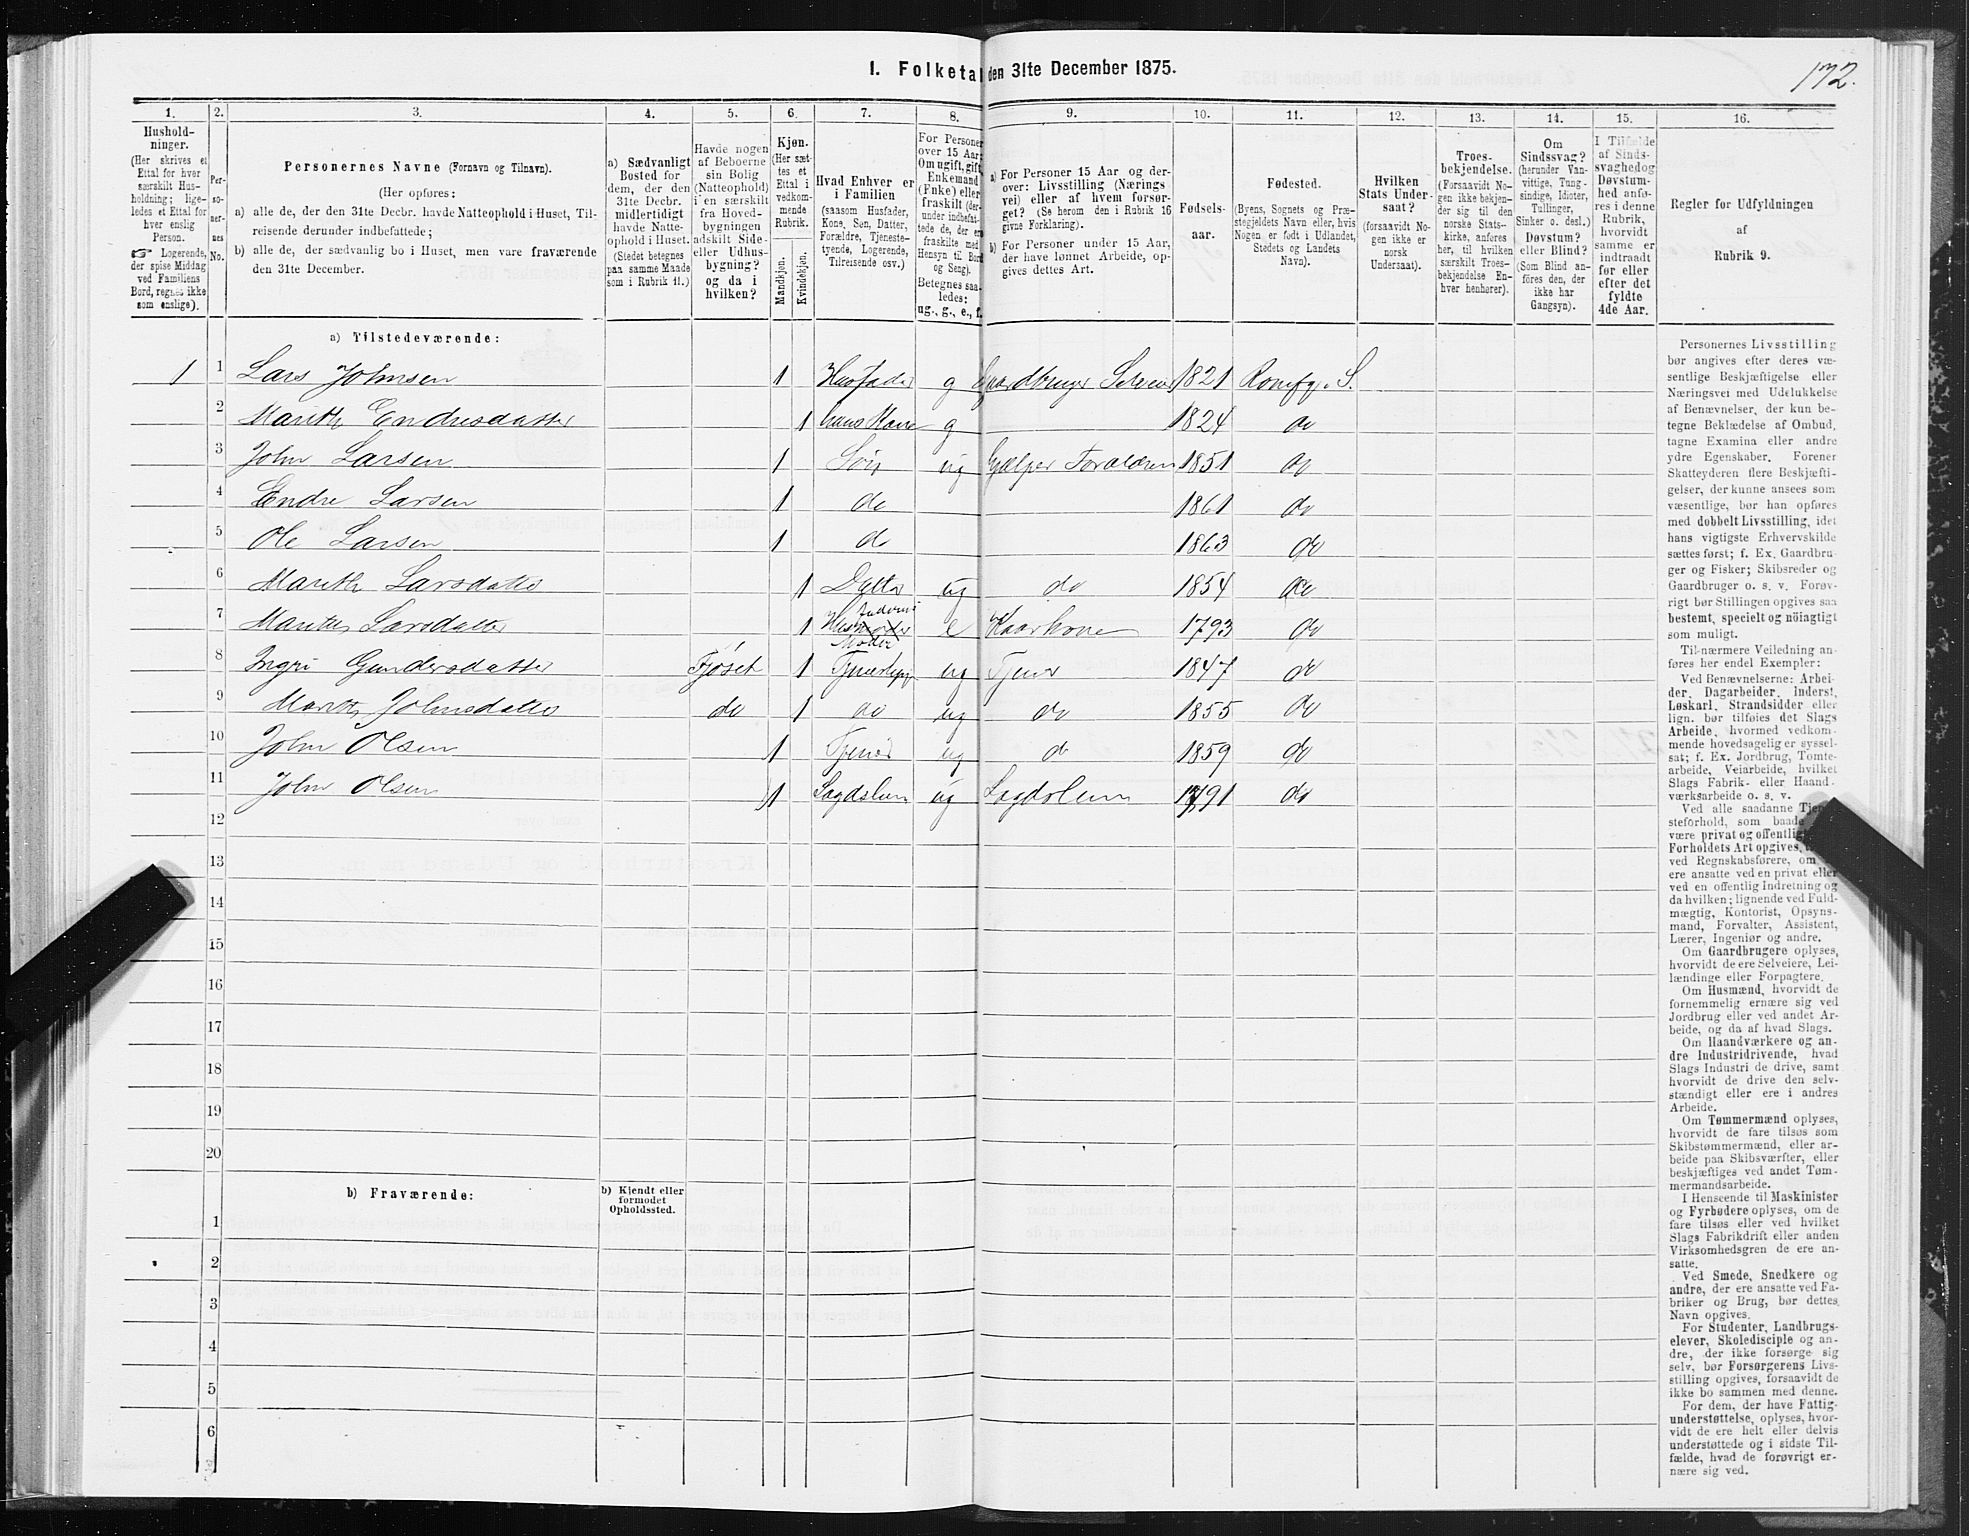 172.
I. Folketal den 31te December 1875.
1. 2. 3. 4. 5. 6. 7. 8. 9. 10. 11. 12. 13. 14. 15. 16.
Hushold-
ninger.
(Her skrives et
Ettal for hver
særskilt Hus-
holdning; lige-
ledes et Ettal for
hver enslig
Person.
☞ Logerende,
der spise Middag
ved Familiens
Bord, regnes ikke
som enslige).
Per-
so-
ner-
nes
No.
Personernes Navne (Fornavn og Tilnavn).
(Her opføres:
a) alle de, der den 31te Decbr. havde Natteophold i Huset, Til-
reisende derunder indbefattede;
b) alle de, der sædvanlig bo i Huset, men vare fraværende
den 31te December.
a) Sædvanligt
Bosted for
dem, der den
31te Decbr.
midlertidigt
havde Natte-
ophold i Huset.
(Stedet betegnes
paa samme Maade
som i Rubrik 11.)
Havde nogen
af Beboerne
sin Bolig
(Natteophold)
i en særskilt
fra Hoved-
bygningen
adskilt Side-
eller Udhus-
bygning?
og da i
hvilken?
Kjøn.
(Her sæt-
tes et
Ettal i
vedkom-
mende
Rubrik.
Mandkjøn.
Kvindekjøn.
Hvad Enhver er
i Familien
(saasom Husfader,
Kone, Søn, Datter,
Forældre, Tjeneste-
tyende, Logerende,
Tilreisende osv.)
For Personer
over 15 Aar:
Om ugift, gift,
Enkemand
(Enke) eller
fraskilt (der-
under indbefat-
tede de, der ere
fraskilte med
Hensyn til Bord
og Seng).
Betegnes saa-
ledes:
ug., g., e., f.
a) For Personer 15 Aar og der-
over: Livsstilling (Nærings-
vei) eller af hvem forsør-
get? (Se herom den i Rubrik 16
givne Forklaring).
b) For Personer under 15 Aar,
der have lønnet Arbeide, op-
gives dettes Art.
Fødsels-
aar.
Fødested.
(Byens, Sognets og Præ-
stegjeldets Navn eller, hvis
Nogen er født i Udlandet,
Stedets og Landets
Navn).
Hvilken
Stats Under-
saat?
(forsaavidt No-
gen ikke er
norsk
Undersaat).
Troes-
bekjendelse.
(Forsaavidt No-
gen ikke bekjen-
der sig til den
norske Stats-
kirke, anføres
her, til hvilken
særskilt Troes-
bekjendelse En-
hver henhører).
Om
Sindssvag?
(herunder Van-
vittige, Tung-
sindige, Idioter,
Tullinger,
Sinker o. desl.)
Døvstum?
eller Blind?
(Som Blind an-
føres den, der
ikke har
Gangsyn).
I Tilfælde
af Sinds-
svaghed og
Døvstum-
hed anfø-
res i denne
Rubrik,
hvorvidt
samme er
indtraadt
før eller
efter det
fyldte
4de Aar.
Regler for Udfyldningen
af
Rubrik 9.
a) Tilstedeværende:
1 1 Lars Johnsen 1 Husfader g Gaardbruger Seleier 1821 S.
2 Marith Endresdatter 1 hans Kone g 1824 do
3 John Larsen 1 Søn ug Hjælper Foraldren 1851 do
4 Endre Larsen 1 do 1861 do
5 Ole Larsen 1 do 1863 do
6 Marith Larsdatter 1 Datter ug do 1854 do
7 Marith Larsdatter 1 Husfaderens Moder e Kaarkone 1793 do
8 Ingri Gundersdatter Fjøset 1 ug Tjener 1847 do
9 Marith Johnsdatter do 1 do ug do 1855 do
10 John Olsen 1 Tjener ug do 1859 do
11 John Olsen 1 Lægdslem ug Lægdslem 1791 do
12
13
14
15
16
17
18
19
20
b) Fraværende:
b) Kjendt eller
formodet
Opholdssted.
1
2
3
4
5
6
Personernes Livsstilling
bør angives efter deres væ-
sentlige Beskjæftigelse eller
Næringsvei med Udelukkelse
af Benævnelser, der kun be-
tegne Beklædelse af Ombud,
tagne Examina eller andre
ydre Egenskaber. Forener
Skatteyderen flere Beskjæfti-
gelser, der kunne ansees som
væsentlige, bør han opføres
med dobbelt Livsstilling, idet
hans vigtigste Erhvervskilde
sættes først; f. Ex. Gaardbru-
ger og Fisker; Skibsreder og
Gaardbruger o. s. v. Forøv-
rigt bør Stillingen opgives saa
bestemt, specielt og nöiagtigt
som muligt.
Til nærmere Veiledning an-
føres her endel Exempler:
Ved Benævnelserne: Arbei-
der, Dagarbeider, Inderst,
Løskarl, Strandsidder eller
lign. bør tilføies det Slags
Arbeide, hvormed vedkom-
mende hovedsagelig er syssel-
sat; f. Ex. Jordbrug, Tomte-
arbeide, Veiarbeide, hvilket
Slags Fabrik- eller Haand-
værksarbeide o. s. v.
Ved alle saadanne Tjene-
steforhold, som baade
være privat og offentligt,
Forholdets Art opgives,
ved Regnskabsførere, om
ere ansatte ved en privat eller
ved en offentlig Indretning og
da hvilken; lignende ved Fuld-
mægtig, Kontorist, Opsyns-
mand, Forvalter, Assistent,
Lærer, Ingeniør og andre.
Om Gaardbrugere oplyses,
hvorvidt de ere Selveiere, Lei-
lændinge eller Forpagtere.
Om Husmænd, hvorvidt de
fornemmelig ernære sig ved
Jordbrug eller ved andet Ar-
beide, og da af hvad Slags.
Om Haandværkere og an-
dre Industridrivende, hvad
Slags Industri de drive, samt
hvorvidt de drive den selv-
stændigt eller ere i andres
Arbeide.
Om Tømmermænd oplyses,
hvorvidt de fare tilsøs som
Skibstømmermænd, eller ar-
beide paa Skibsværfter, eller
beskjæftiges ved andet Tøm-
mermandsarbeide.
I Henseende til Maskinister
og Fyrbødere oplyses, om de
fare tilsøs eller ved hvilket
Slags Fabrikdrift eller anden
Virksomhedsgren de ere an-
satte.
Ved Smede, Snedkere og
andre, der ere ansatte ved Fa-
briker og Brug, bør dettes
Navn opgives.
For Studenter, Landbrugs-
elever, Skoledisciple og an-
dre, der ikke forsørge sig
selv, bør Forsørgerens Livs-
stilling opgives, forsaavidt de
ikke bo sammen med denne.
For dem, der have Fattig-
understøttelse, oplyses, hvor-
vidt de ere helt eller delvis
understøttede og i sidste Til-
fælde, hvad de forøvrigt er-
nære sig ved.